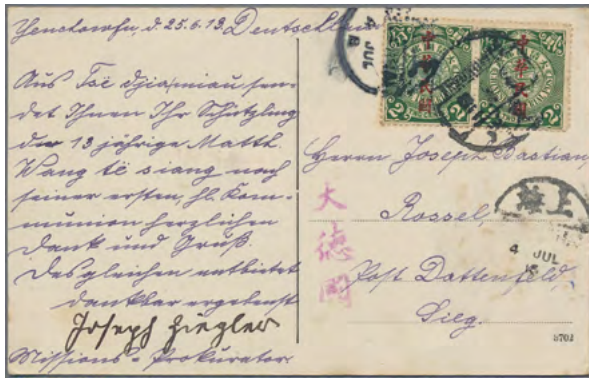 Yenchowfu, d. 25.6.13. Deutschland
Aus Tsë Djiamiau sen-
det Ihnen Ihr Schützling
der 13 jährige Matth.
Wang të siang nach
seiner ersten, hl. Kom-
munion herzlichen
Dank und Gruß.
Desgleichen entbietet
dankbar ergebenst
Joseph Ziegler
Missions-Prokurator
4 JUL
中華民國
中華民國
2
2
Herrn Joseph Bastian,
Rossel,
Post Dattenfeld,
Sieg.
大德國
海上
4 JUL